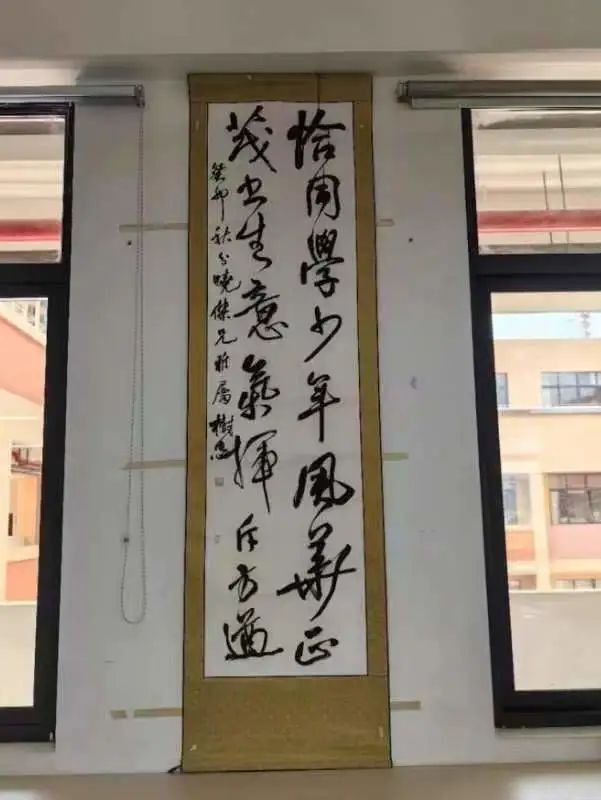 恰同學少年風華正
茂书生意氣揮斥方遒
癸卯秋分曉傑兄雅屬 樹忠